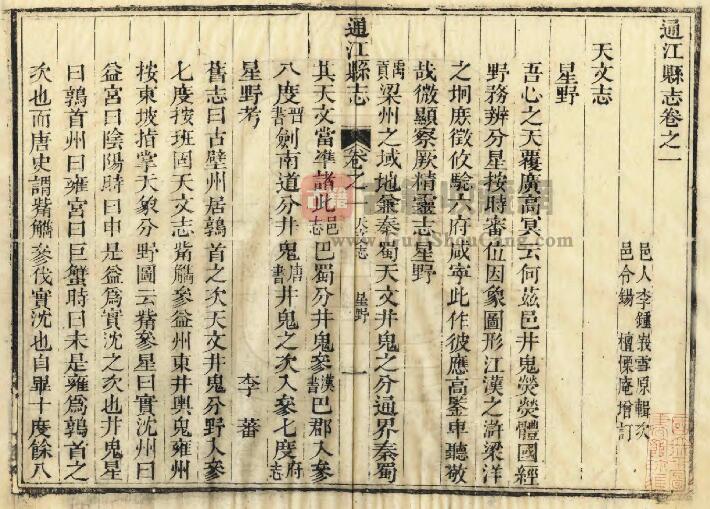 通江縣志卷之一
邑人李鍾峩雪原輯次
邑令錫檀傈庵增訂
天文志
星野
吾心之天覆廣高冥云何茲邑井鬼熒熒體國經
野務辨分星按時審位因象圖形江漢之滸梁洋
之坰庶徵攸驗六府咸寧此作彼應高鑒卑聽敬
哉微顯察厥精靈志星野
禹貢梁州之域地兼秦蜀天文井鬼之分通界秦蜀
其天文當準諸此邑志巴蜀分井鬼參漢書巴郡入參
八度晉書劍南道分井鬼唐書井鬼之次入參七度府志
通江縣志
卷之一
天文志
星野
一
星野考
李蕃
舊志曰古壁州居鶉首之次天文井鬼分野入參
七度按班固天文志觜觿參益州東井輿鬼雍州
按東坡指掌天象分野圖云觜參星曰實沈州曰
益宮曰陰陽時曰申是益爲實沈之次也井鬼星
曰鶉首州曰雍宮曰巨蟹時曰未是雍爲鶉首之
次也而唐史謂觜觿參伐實沈也自畢十度餘八
www.GuJiShouCang.com